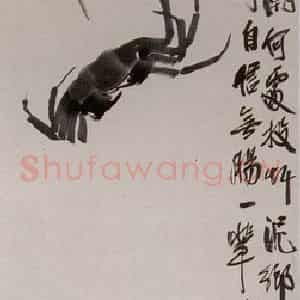 潮何處投艸泥鄉
自信無腸一輩
Shufawang